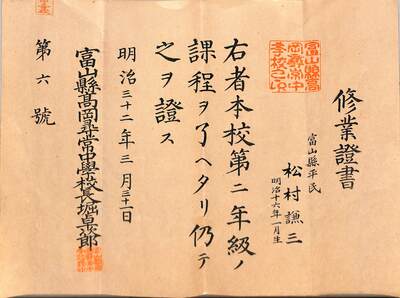 修業證書
富山縣平民
松村謙三
明治十六年一月生
右者本校第二年級ノ
課程ヲ了ヘタリ仍テ
之ヲ證ス
明治三十二年三月三十一日
富山縣高岡尋常中學校長堀
第六號